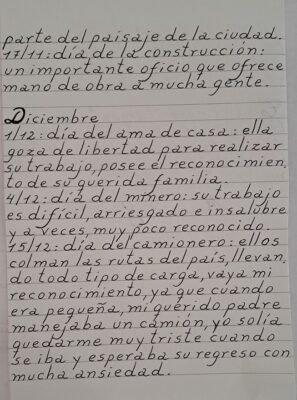 parte del paisaje de la ciudad.
17/11: día de la construcción:
un importante oficio que ofrece
mano de obra a mucha gente.
Diciembre
1/12: día del ama de casa: ella
goza de libertad para realizar
su trabajo, posee el reconocimien,
to de su querida familia.
4/12: día del minero: su trabajo
es difícil, arriesgado e insalubre
y a veces, muy poco reconocido.
15/12: día del camionero: ellos
colman las rutas del país, llevan,
do todo tipo de carga, vaya mi
reconocimiento, ya que cuando
era pequeña, mi querido padre
manejaba un camión, yo solía
quedarme muy triste cuando
se iba y esperaba su regreso con
mucha ansiedad.